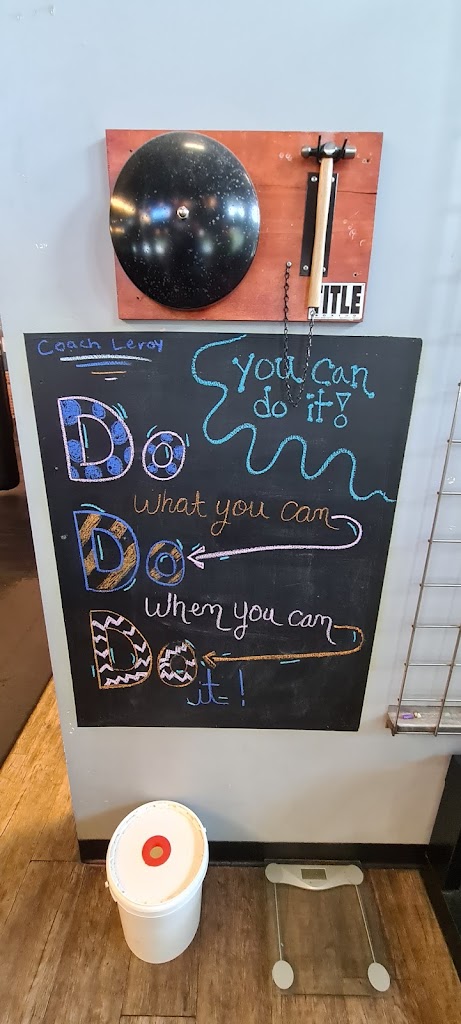 TITLE
Coach Leroy
you can
do it!
Do
What you can
Do
When you can
Do
it!